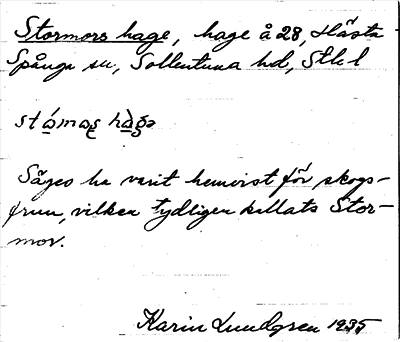 Stormors hage, hage å 28, Hästa
Spånga sn, Sollentuna hd, Sthl
stómoş hàgə
Säges ha varit hemvist för skogs-
frun, vilken tydligen kallats Stor-
mor.
Karin Lundgren 1935